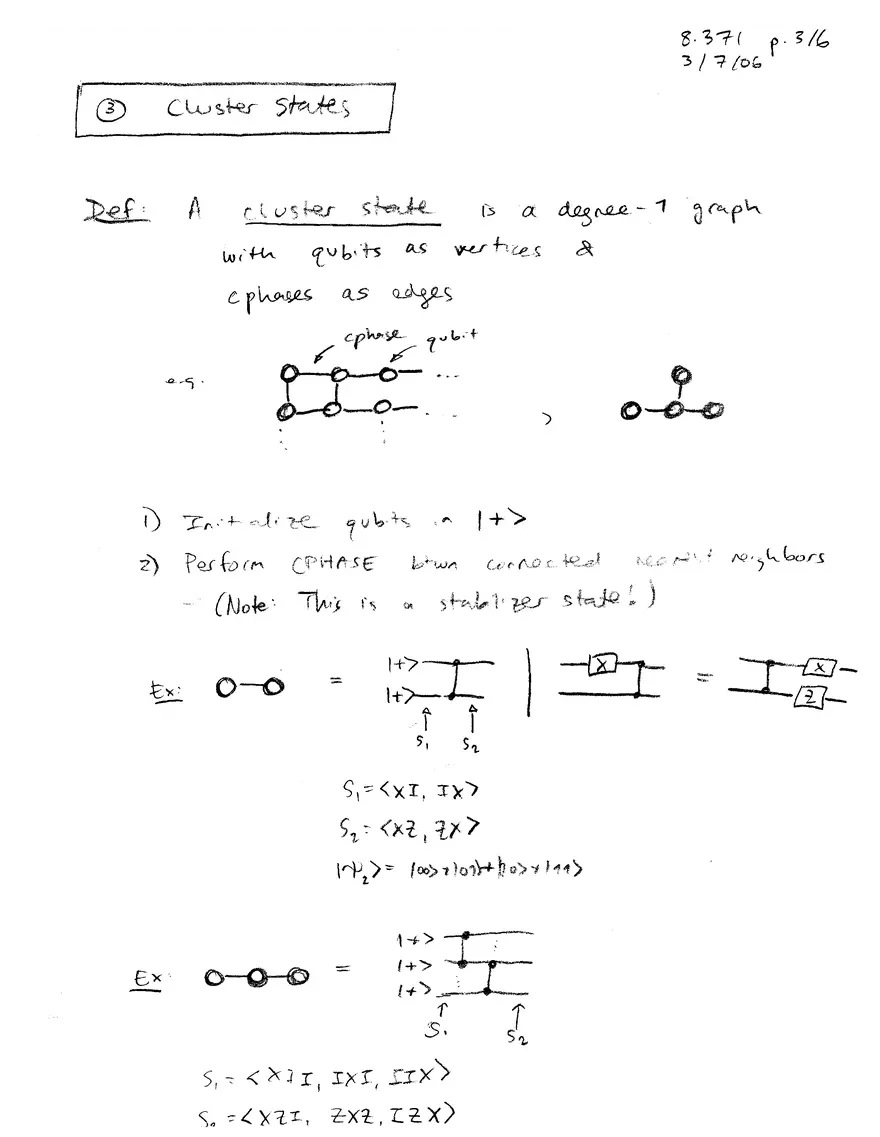 8.371 p. 3/6
3/7/06
③ Cluster States
Def: A cluster state is a degree-1 graph
with qubits as vertices &
cphases as edges
cphase qubit
e.g. ... , 
...
1) Initialize qubits in |+>
2) Perform CPHASE btwn connected nearest neighbors
- (Note: This is a stabilizer state!)
Ex: = |+> |+> | X = X Z
S₁ S₂
S₁ = <XI, IX>
S₂ = <XZ, ZX>
|ψ₂> =
Ex: = |+>
|+>
|+>
S₁ S₂
S₁ = <XII, IXI, IIX>
S₂ = <XZI, ZXZ, IZX>